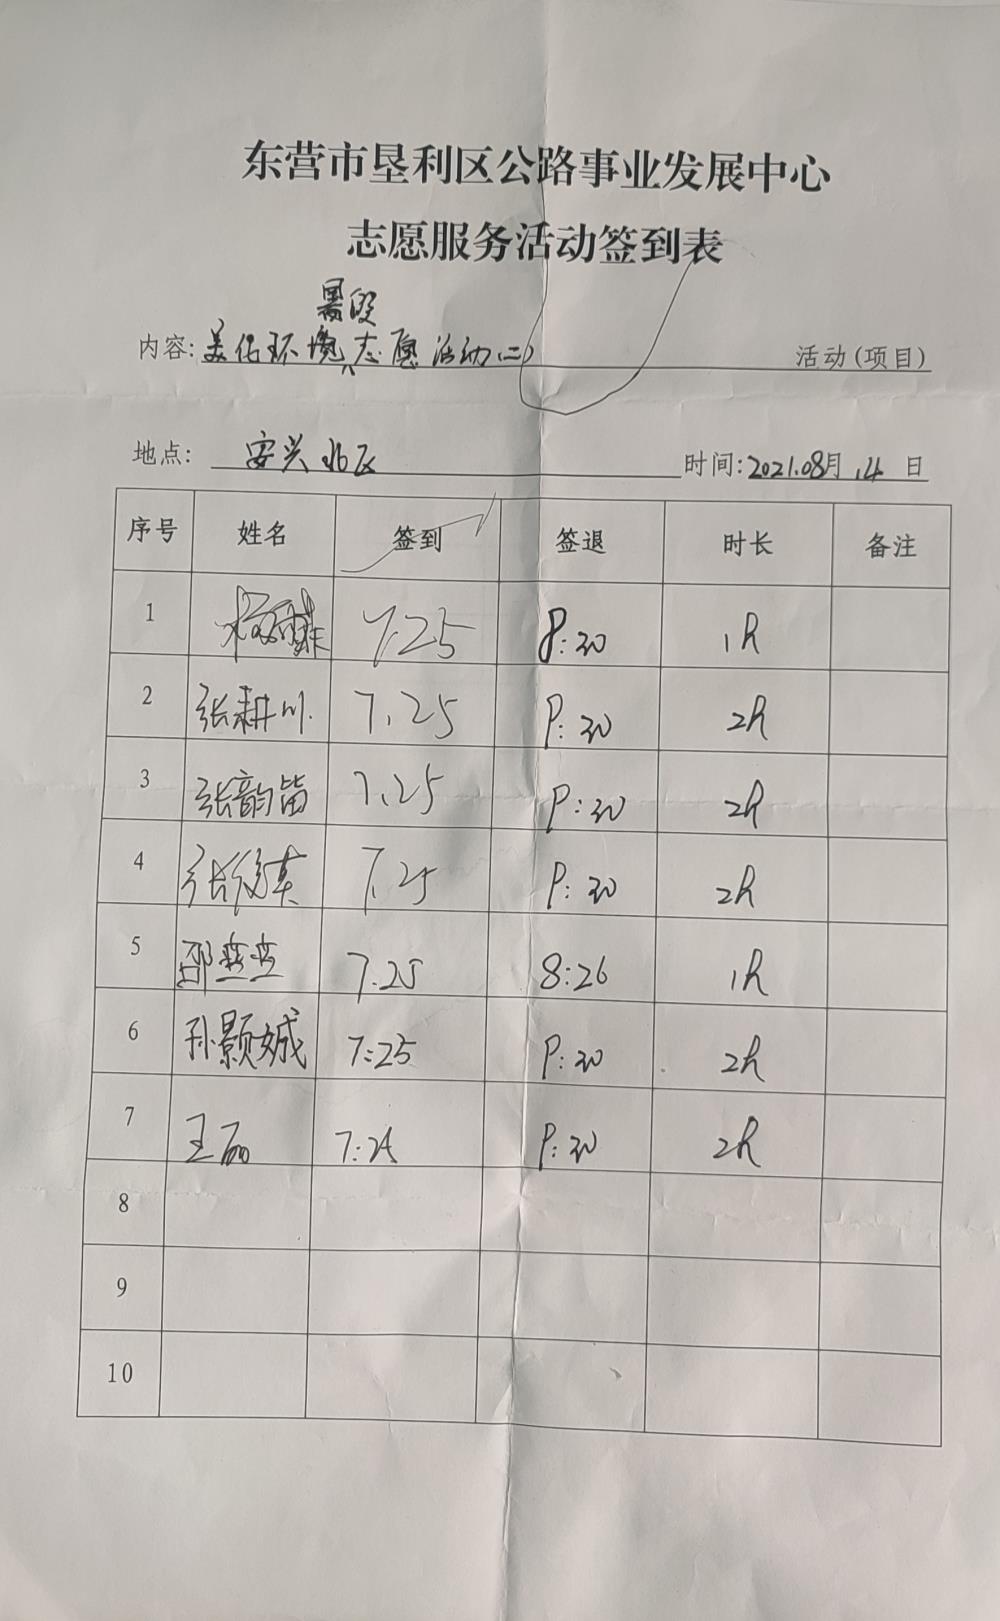 东营市垦利区公路事业发展中心
志愿服务活动签到表
暑段
内容: 美化环境志愿活动(二) 活动(项目)
地点: 安兴北区 时间: 2021.08月14日
序号 姓名 签到 签退 时长 备注
1 7:25 8:30 1h
2 张耕川 7.25 9:30 2h
3 张韵笛 7.25 9:30 2h
4 张 7.25 9:30 2h
5 邵燕燕 7.25 8:26 1h
6 孙颢城 7:25 9:30 2h
7 王丽 7:25 9:30 2h
8
9
10